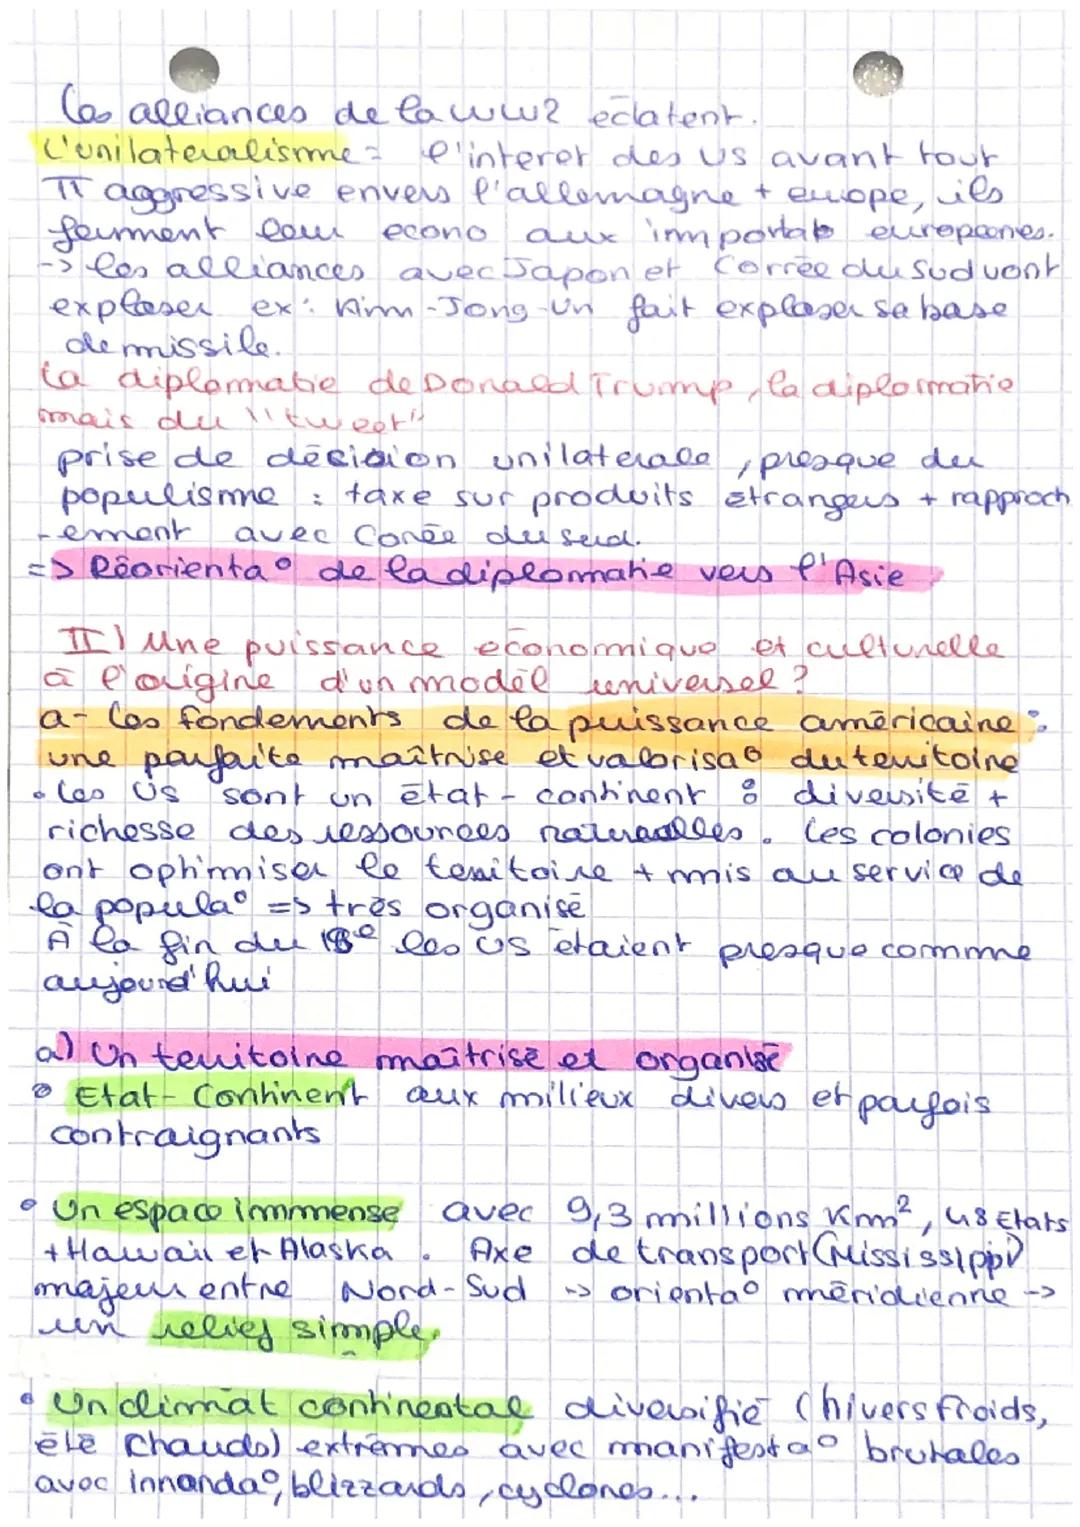 les alliances de la WW2 éclatent.
L'unilateralisme = l'interet des US avant tout
TT aggressive envers l'allemagne + europe, ils
ferment leur econo aux importat° européennes.
-> les alliances avec Japon et Corrée du Sud vont
exploser ex : Kim-Jong-Un fait exploser sa base
de missile.
La diplomatie de Donald Trump, la diplormatie
mais du "tweet"
prise de décision unilaterale, presque du
populisme : taxe sur produits étrangers + rapproch
-ement avec Corée du sud.
=> Réorienta° de la diplomatie vers l'Asie
II) Une puissance economique et culturelle
à l'origine d'un modèl universel ?
a- les fondements de la puissance américaine :
une parfaite maîtrise et valorisa° du territoire
• Les US sont un état-continent : diversité +
richesse des ressources naturelles. Les colonies
ont optimiser le territoire + mis au service de
la popula° => très organisé
À la fin du 18e les US étaient presque comme
aujourd'hui
a) Un territoire maîtrisé et organisé
• Etat-Continent aux milieux divers et parfois
contraignants
• Un espace immmense avec 9,3 millions Km², 48 Etats
+ Hawaii et Alaska. Axe de transport (Mississippi)
majeur entre Nord-Sud -> orienta° méridienne ->
un relief simple.
• Un climat continental diversifié (hivers froids,
été chauds) extrêmes avec manifesta° brutales
avec innonda°, blizzards, cyclones...